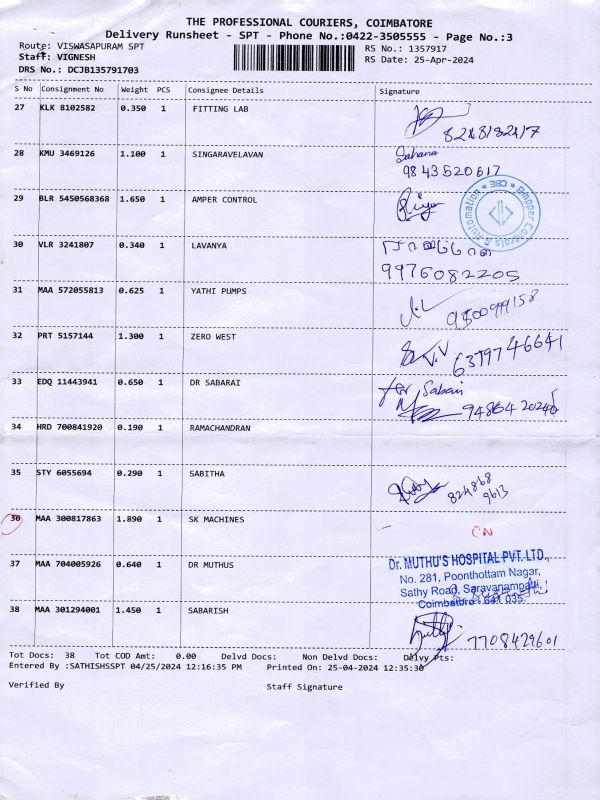 THE PROFESSIONAL COURIERS, COIMBATORE
Delivery Runsheet - SPT - Phone No.:0422-3505555 - Page No.:3
Route: VISWASAPURAM SPT
RS No.: 1357917
Staff: VIGNESH
RS Date: 25-Apr-2024
DRS No.: DCJB135791703
S No Consignment No Weight PCS Consignee Details Signature
27 KLK 8102582 0.350 1 FITTING LAB
28 KMU 3469126 1.100 1 SINGARAVELAVAN Sahana
9843520617
29 BLR 5450568368 1.650 1 AMPER CONTROL
30 VLR 3241807 0.340 1 LAVANYA
9976082205
31 MAA 572055813 0.625 1 YATHI PUMPS
32 PRT 5157144 1.300 1 ZERO WEST
6379746641
33 EDQ 11443941 0.650 1 DR SABARAI for Sabari
34 HRD 700841920 0.190 1 RAMACHANDRAN
35 STY 6055694 0.290 1 SABITHA
824868
9613
36 MAA 300817863 1.890 1 SK MACHINES
CN
37 MAA 704005926 0.640 1 DR MUTHUS
Dr. MUTHU'S HOSPITAL PVT. LTD.,
No. 281, Poonthottam Nagar,
Sathy Road, Saravanampatti,
Coimbatore - 641 035.
38 MAA 301294001 1.450 1 SABARISH
7708429601
Tot Docs: 38 Tot COD Amt: 0.00 Delvd Docs: Non Delvd Docs: Delvy Pts:
Entered By :SATHISHSSPT 04/25/2024 12:16:35 PM Printed On: 25-04-2024 12:35:30
Verified By Staff Signature